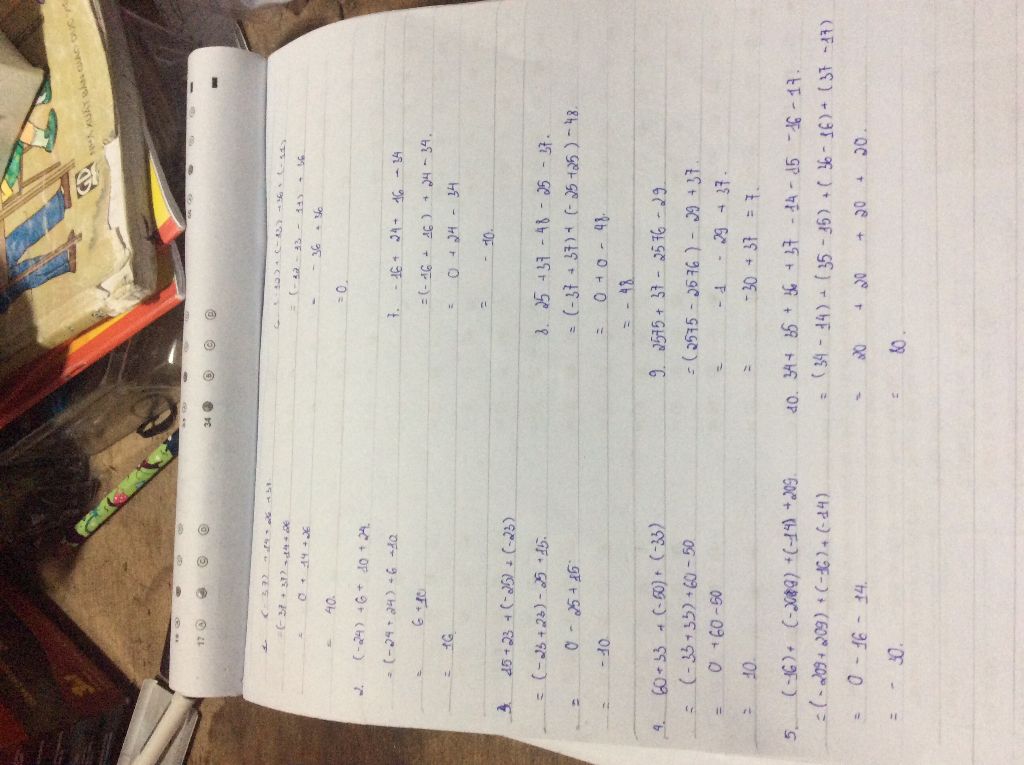 1. (-37) + 14 + 26 + 37
= (-37 + 37) + 14 + 26
= 0 + 14 + 26
= 40.
2. (-24) + 6 + 10 + 24
= (-24 + 24) + 6 + 10
= 6 + 10
= 16
3. 15 + 23 + (-25) + (-23)
= (-23 + 23) - 25 + 15
= 0 - 25 + 15
= -10
4. 60 + 33 + (-50) + (-33)
= (-33 + 33) + 60 - 50
= 0 + 60 - 50
= 10.
5. (-16) + (-209) + (-14) + 209
= (-209 + 209) + (-16) + (-14)
= 0 - 16 - 14.
= - 30.
(-12) + (-13) + 36 + (-11)
= (-12 - 13 - 11) + 36
= - 36 + 36
= 0
7. -16 + 24 + 16 - 34
= (-16 + 16) + 24 - 34.
= 0 + 24 - 34
= - 10.
8. 25 + 37 - 48 - 25 - 37.
= (-37 + 37) + (-25 + 25) - 48.
= 0 + 0 - 48.
= - 48
9. 2575 + 37 - 2576 - 29
= (2575 - 2576) - 29 + 37.
= - 1 - 29 + 37.
= -30 + 37 = 7.
10. 34 + 35 + 36 + 37 - 14 - 15 - 16 - 17.
= (34 - 14) + (35 - 15) + (36 - 16) + (37 - 17)
= 20 + 20 + 20 + 20.
= 80.
17 A C D
34 B C D